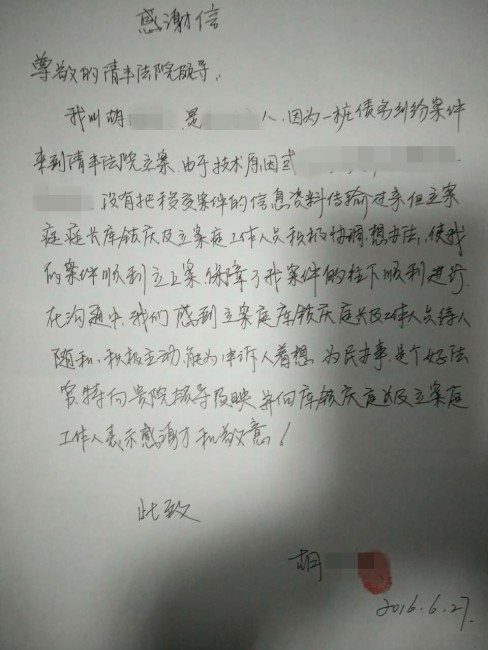 感谢信
尊敬的清丰法院领导:
我叫胡 是 人,因为一桩债务纠纷案件
来到清丰法院立案,由于技术原因
没有把移交案件的信息资料传输过来,但立案
庭庭长库铁庆及立案庭工作人员积极协调,想办法,使我
的案件顺利立上案,保障了我案件的往下顺利进行.
在沟通中,我们感到立案庭库铁庆庭长及工作人员待人
随和,积极主动,能为申诉人着想,为民办事,是个好法
官,特向贵院领导反映,并向库铁庆庭长及立案庭
工作人表示感谢 和敬意!
此致
胡
2016.6.27.